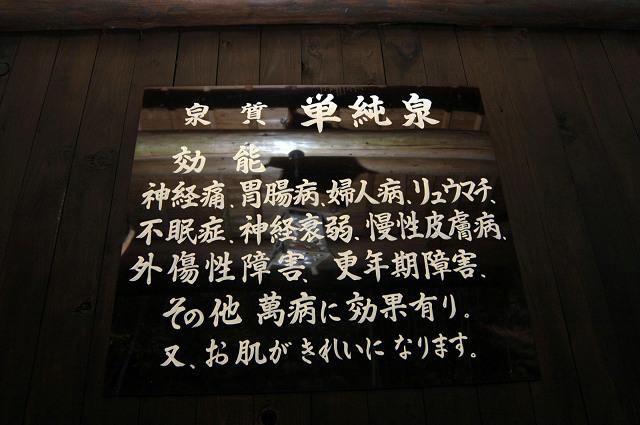 泉質 単純泉
効能
神経痛、胃腸病、婦人病、リュウマチ、
不眠症、神経衰弱、慢性皮膚病、
外傷性障害、更年期障害、
その他 萬病に効果有り。
又、お肌がきれいになります。